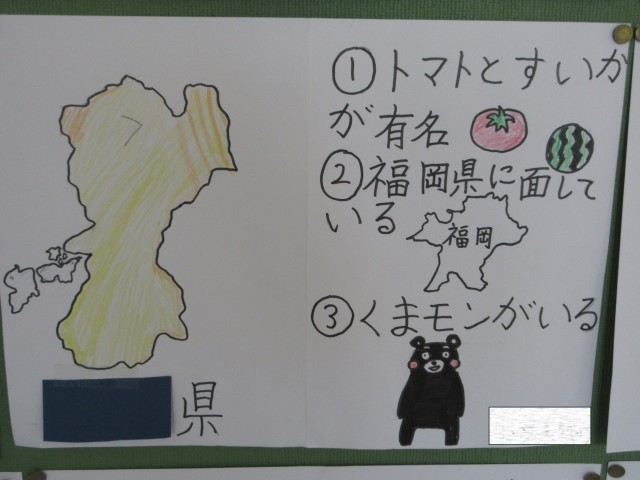 ①トマトとすいか
が有名
②福岡県に面して
いる
福岡
③くまモンがいる
県